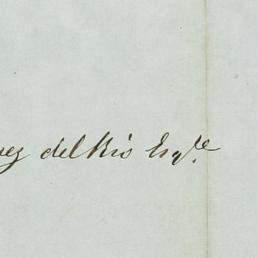 ez del Rio Esqre.